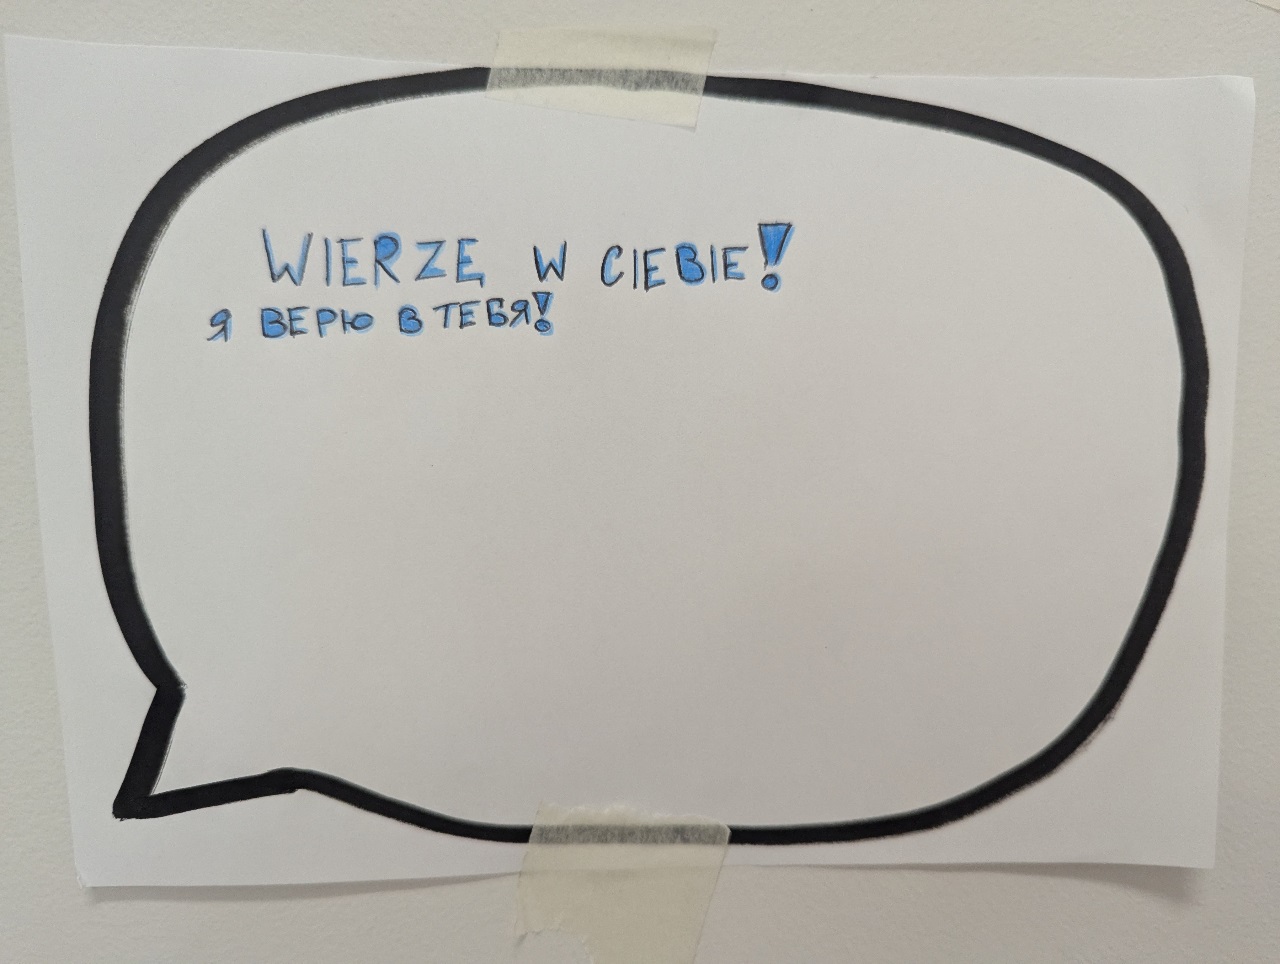 WIERZĘ W CIEBIE!
Я ВЕРЮ В ТЕБЯ!